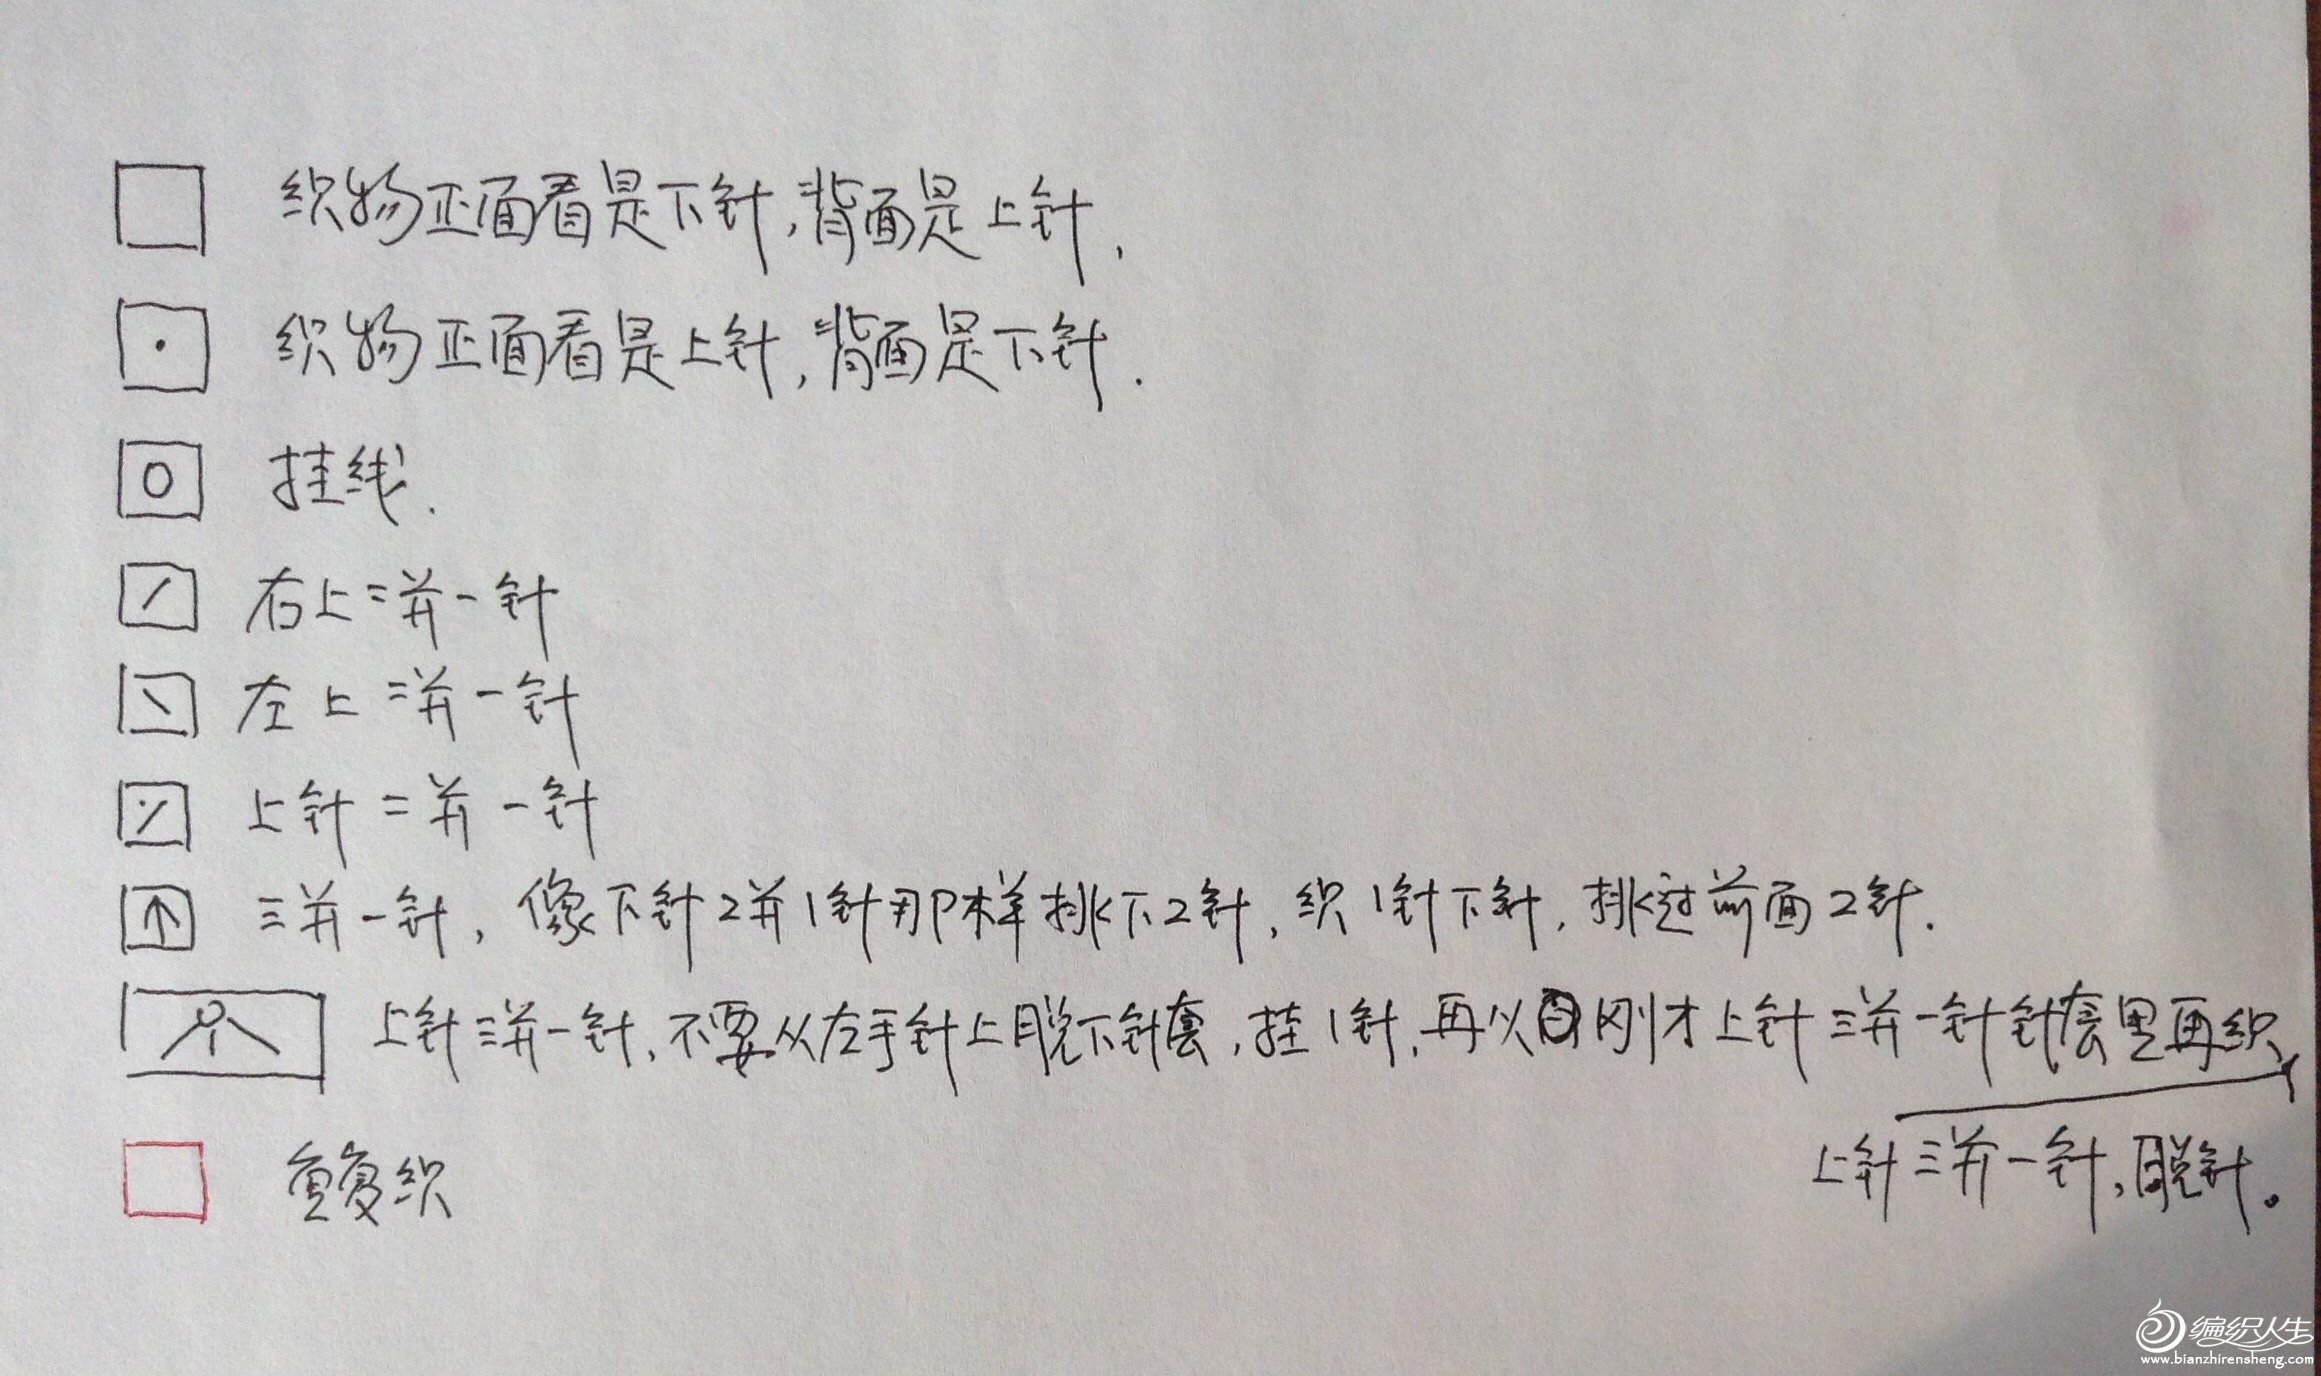 织物正面看是下针,背面是上针,
织物正面看是上针,背面是下针.
挂线.
右上二并一针
左上二并一针
上针二并一针
三并一针,像下针2并1针那样挑下2针,织1针下针,挑过前面2针.
上针三并一针,不要从左手针上脱下针套,挂1针,再从刚才上针三并一针针套里再织
上针三并一针,脱针。
重复织
编织人生
www.bianzhirensheng.com